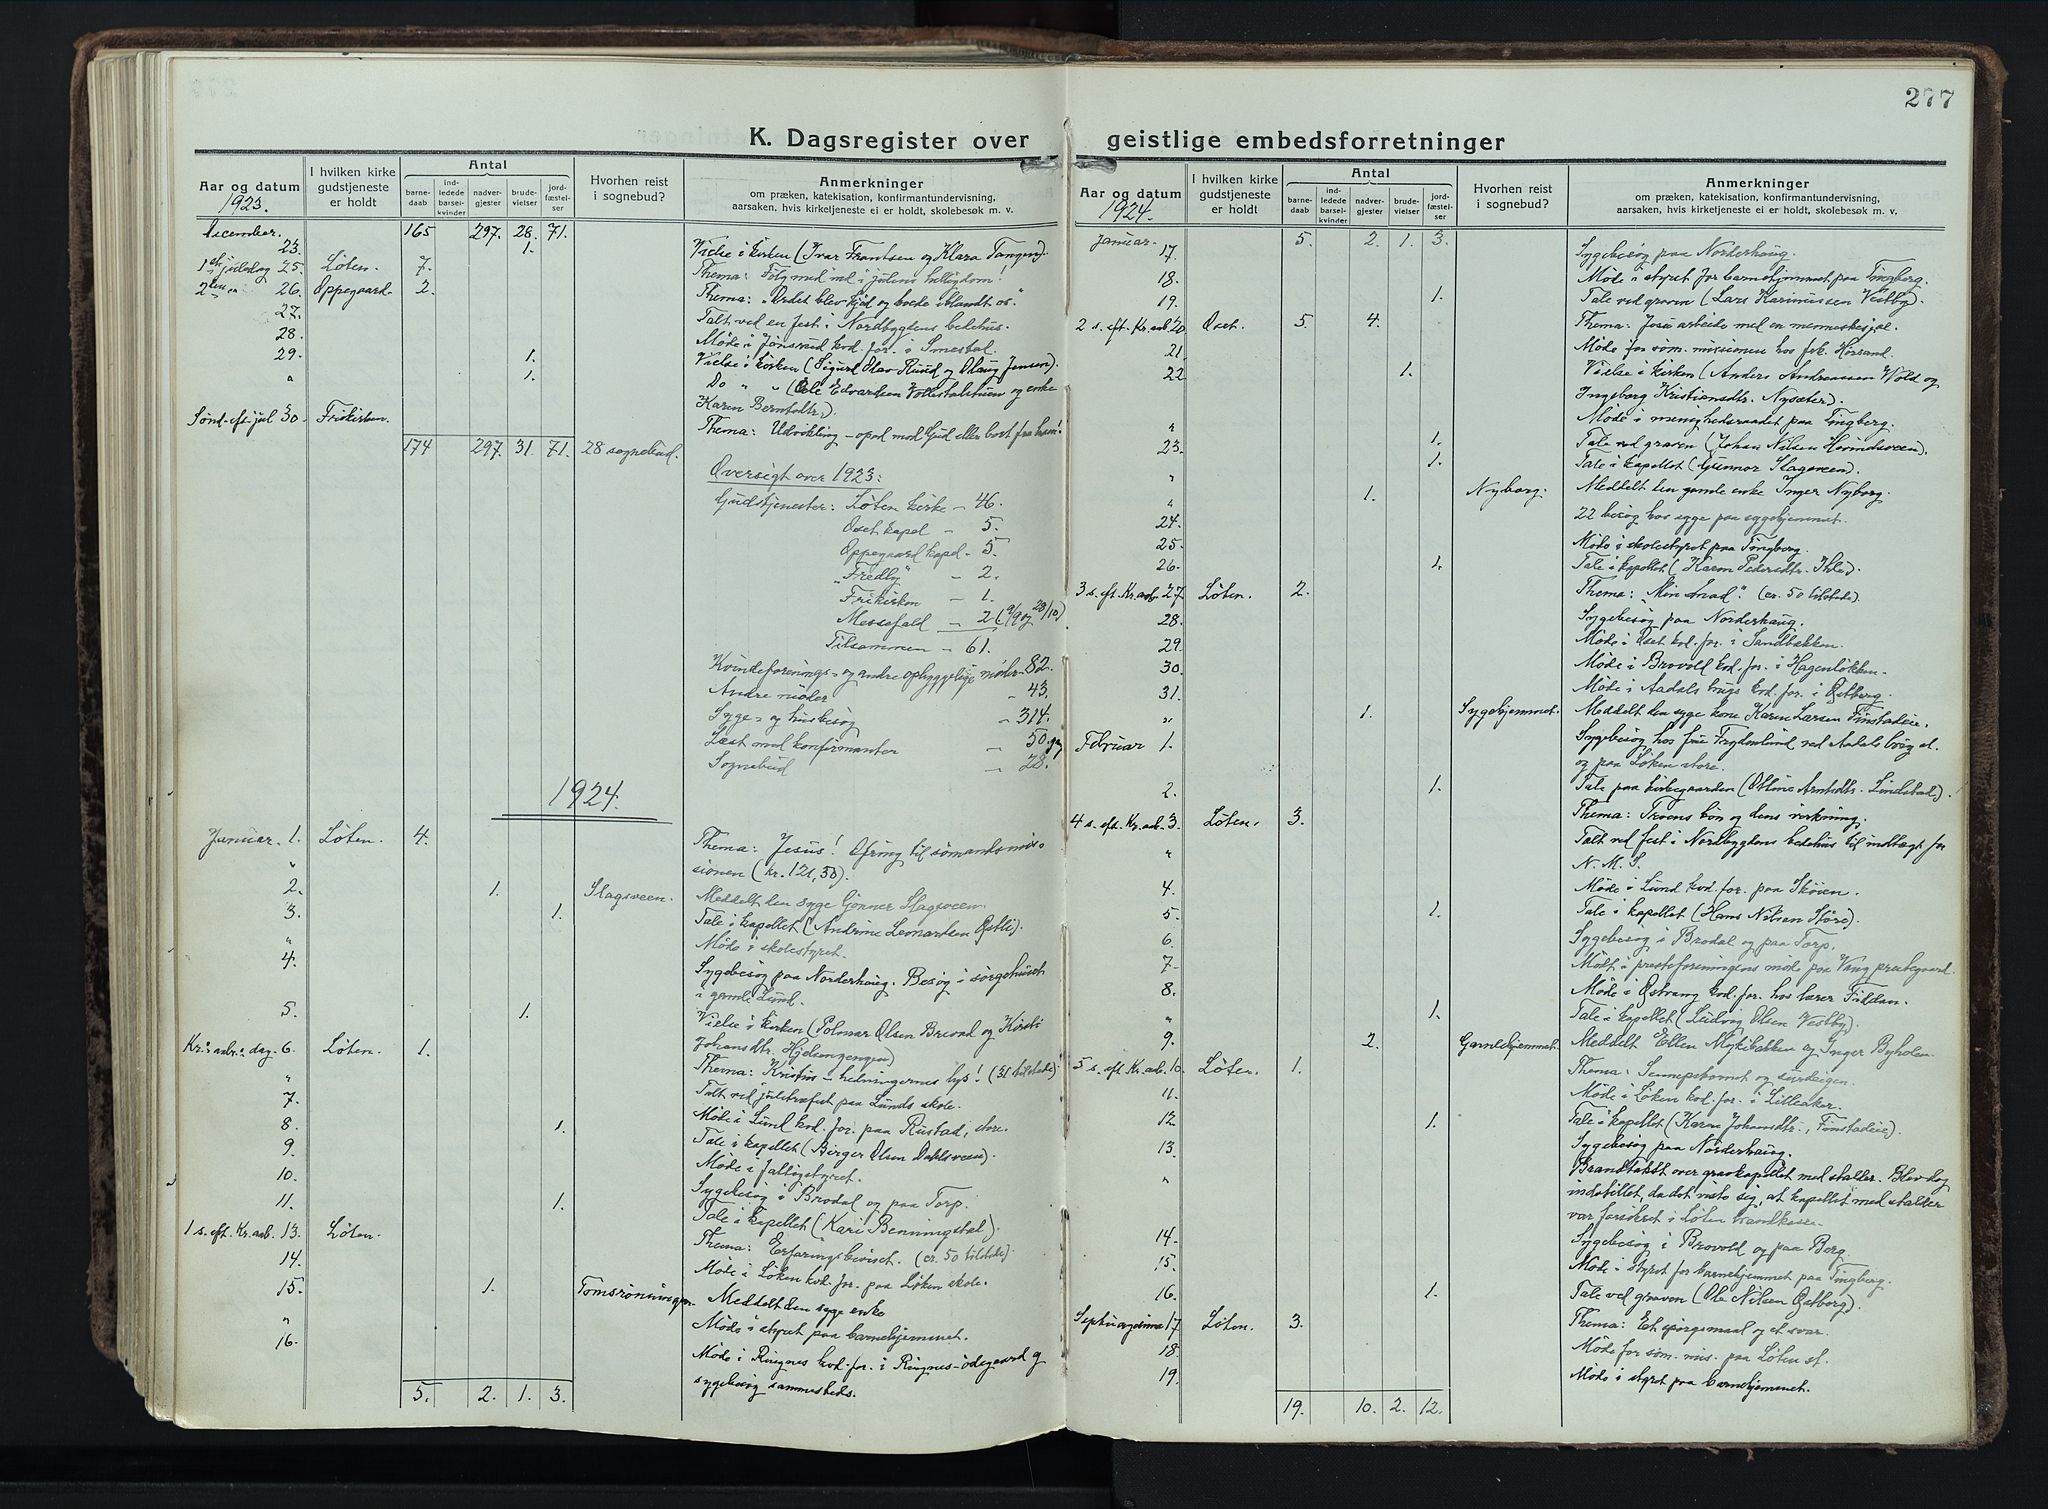 277
K. Dagsregister over geistlige embedsforretninger
Aar og datum
1923.
I hvilken kirke gudstjeneste er holdt
Antal
barnedaab
indledede barselkvinder
nadvergjester
brudevielser
jordfæstelser
Hvorhen reist i sognebud?
Anmerkninger
om præken, katekisation, konfirmantundervisning, aarsaken, hvis kirketjeneste ei er holdt, skolebesøk m. v.
December. 165 297. 28. 71.
23. 1. Vielse i kirken (Ivar Frantsen og Klara Tangen).
1ste juledag 25. Løten. 7. Thema: Følg med ind i julens helligdom!
2den " 26. Oppegaard. 2. Thema: "Ordet blev kjød og boede iblandt os".
27. Talt ved en fest i Nordbygdens bedehus.
28. Møde i Jønsrud kvd. for. i Smestal.
29. 1. Vielse i kirken (Sigurd Olav Rund og Olaug Jensen).
" 1. Do " " (Ole Edvardsen og enke
Karen Berntsdtr.).
Sønd. eft. jul 30. Frikirken. Thema: Udvikling - opad mod Gud eller bort fra ham!
174 297. 31. 71. 28 sognebud.
Oversigt over 1923:
Gudstjenester: Løten kirke - 46.
Oset kapel - 5.
Oppegaard kapel - 5.
"Fredly" - 2.
Frikirken - 1.
Messefald - 2 (9/9 og 28/10)
Tilsammen - 61.
Kvindeforenings- og andre opbyggelige møder - 82.
Andre møder " 43.
Syge- og husbesøg " 314.
Læst med konfirmanter " 50 gg
Sognebud " 28.
1924.
Januar. 1. Løten. 4. Thema: Jesus! Ofring til sømandsmis-
sionen (kr. 121,50).
2. 1. Slagsveen. Meddelt den syge Gunnor Slagsveen.
3. 1. Tale i kapellet (Andrine Leonardsen Østli).
" Møde i skolestyret.
4. Sygebesøg paa Norderhaug. Besøg i sørgehuset
i gamle Lund.
5. 1. Vielse i kirken (Polmar Olsen Brevad og Kirsti
Johansdtr. Hjelmengengen)
Kr. aabr. dag. 6. Løten. 1. Thema: Kristus - hedningernes lys! (31 tilstede)
" Talt ved juletræfest paa Lunds skole.
7. Møde i Lund kvd. for. paa Rustad, store.
8. 1. Tale i kapellet (Birger Olsen Dahlsveen).
9. Møde i fattigstyret.
10. Sygebesøg i Brodal og paa Torp.
11. 1. Tale i kapellet (Kari Benningstal).
1 s. eft. Kr. aab. 13. Løten. Thema: Erfaringsbeviset. (ca. 50 tilstede).
14. Møde i Løken kvd. for. paa Løken skole.
15. 1. Tomsrønningen. Meddelt den syge enke
" Møde i styret paa barnehjemmet.
16. Møde i Ringnes kvd. for. i Ringnes-ødegaard og
sygebesøg sammesteds.
5. 2. 1. 3.
Aar og datum
1924.
I hvilken kirke gudstjeneste er holdt
Antal
barnedaab
indledede barselkvinder
nadvergjester
brudevielser
jordfæstelser
Hvorhen reist i sognebud?
Anmerkninger
om præken, katekisation, konfirmantundervisning, aarsaken, hvis kirketjeneste ei er holdt, skolebesøk m. v.
Januar. 5. 2. 1. 3.
17. Sygebesøg paa Norderhaug.
18. Møde i styret for barnehjemmet paa Tingberg.
19. 1. Tale ved graven (Lars Karinussen Vestby).
2 s. eft. Kr. aab. 20. Oset. 5. 4. Thema: Jesu arbeide med en menneskesjæl.
21. Møde for søm. missionen hos frk. Hørsand.
22 1. Vielse i kirken (Anders Andreassen Wold og
Ingeborg Kristiansdtr. Nysæter).
" Møde i menighedsraadet paa Tingberg.
23. 1. Tale ved graven (Johan Nilsen Hovindsveen).
" 1. Tale i kapellet (Gunnor Slagsveen).
" 1. Nyborg. Meddelt den gamle enke Inger Nyborg.
24. 22 besøg hos syge paa sygehjemmet.
25. Møde i skolestyret paa Tingberg.
26. 1. Tale i kapellet (Karen Pedersdtr. Ihle).
3 s. eft. Kr. aab. 27. Løten. 2. Thema: "Min Arvad." (ca. 50 tilstede).
28. Sygebesøg paa Norderhaug.
29. Møde i Oset kvd. for. i Sandbakken.
30. Møde i Brovold kvd. for. i Hagenløkken.
31. Møde i Aadals brugs kvd. for. i Østberg.
" 1. Sygehjemmet. Meddelt den syge kone Karen Larsen Finstadeie.
Februar 1. Sygebesøg hos frue Frydenlund ved Aadals brug st.
og paa Løken store.
2. 1. Tale paa kirkegaarden (Otline Arntsdtr. Lindstad).
4 s. eft. Kr. aab. 3. Løten. 3. Thema: Troens bøn og dens virkning.
" Talt ved fest i Nordbygdens bedehus til indtægt for
N. M. S.
4. Møde i Lund kvd. for. paa Skøien.
5. 1. Tale i kapellet (Hans Nilsen Støre).
6. Sygebesøg i Brodal og paa Torp.
7. Mødt i presteforeningens møde paa Vang prestegaard.
8. Møde i Østvang kvd. for. hos lærer Fiddan.
" 1. Tale i kapellet (Ludvig Olsen Vestby).
9. 2. Gamlehjemmet. Meddelt Ellen Mykibakken og Inger Byholen.
5 s. eft. Kr. aab. 10. Løten. 1. Thema: Sennepskornet og surdeigen.
11. Møde i Løken kvd. for. i Lilleaker.
12. 1. Tale i kapellet (Karen Johansdtr., Finstadeie).
13. Sygebesøg paa Norderhaug.
" Brandtakst over gravkapellet med stalder. Blev dog
indstillet, da det viste sig, at kapellet med stalder
var forsikret i Løten brandkasse.
14. Sygebesøg i Brovold og paa Berg.
15. Møde i styret for barnehjemmet paa Tingberg.
16. 1. Tale ved graven (Ole Nilsen Østberg).
Septuagesima 17. Løten. 3. Thema: Et spørgsmaal og et svar.
18. Møde for søm. mis. paa Løten st.
19. Møde i styret paa barnehjemmet.
19. 10. 2. 12.